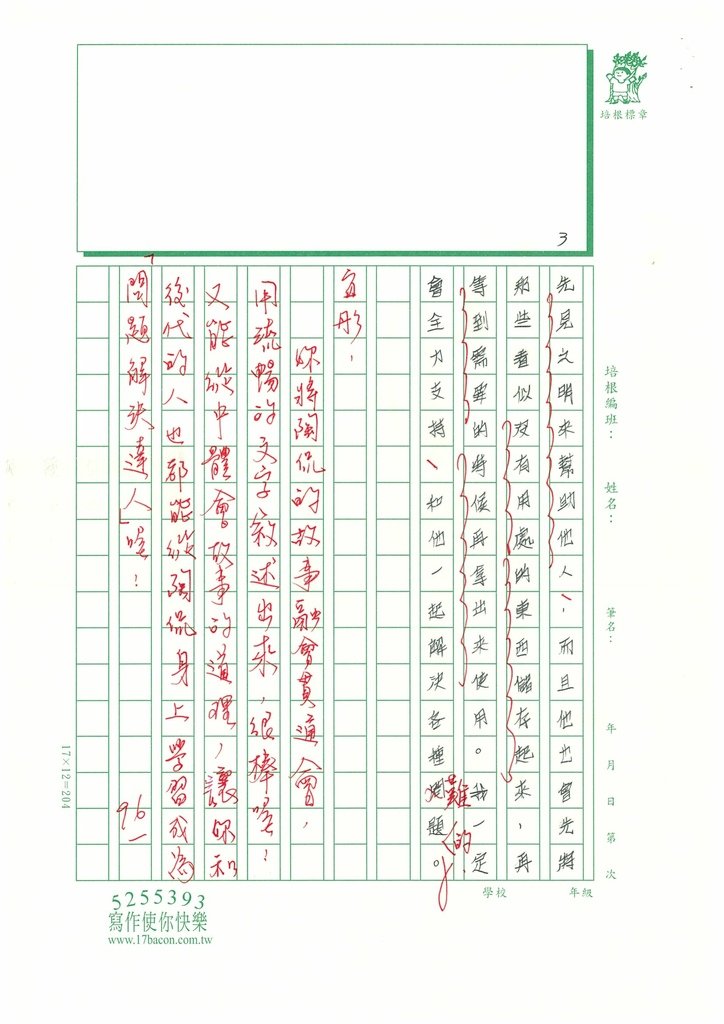 培根標章
3
培根編班：
姓名：
筆名：
年 月 日 第 次
學校
年級
先見之明來幫助他人，而且他也會先將
那些看似沒有用處的東西儲存起來，再
等到需要的時候再拿出來使用。我一定
會全力支持、和他一起解決各種
難
的
題。
宜彤，
妳將陶侃的故事融會貫通會，
用流暢的文字敘述出來，很棒喔！
又能從中體會故事的道理，讓妳和
後代的人也都能從陶侃身上學習成為
「問題解決達人」喔！
96
17×12=204
5255393
寫作使你快樂
www.17bacon.com.tw